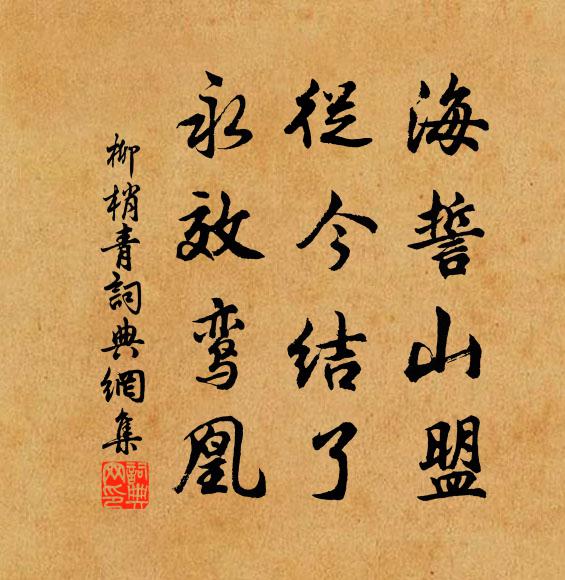 海誓山盟
從今结了
永效鸾凰
柳梢青詞典網集
詞典网印